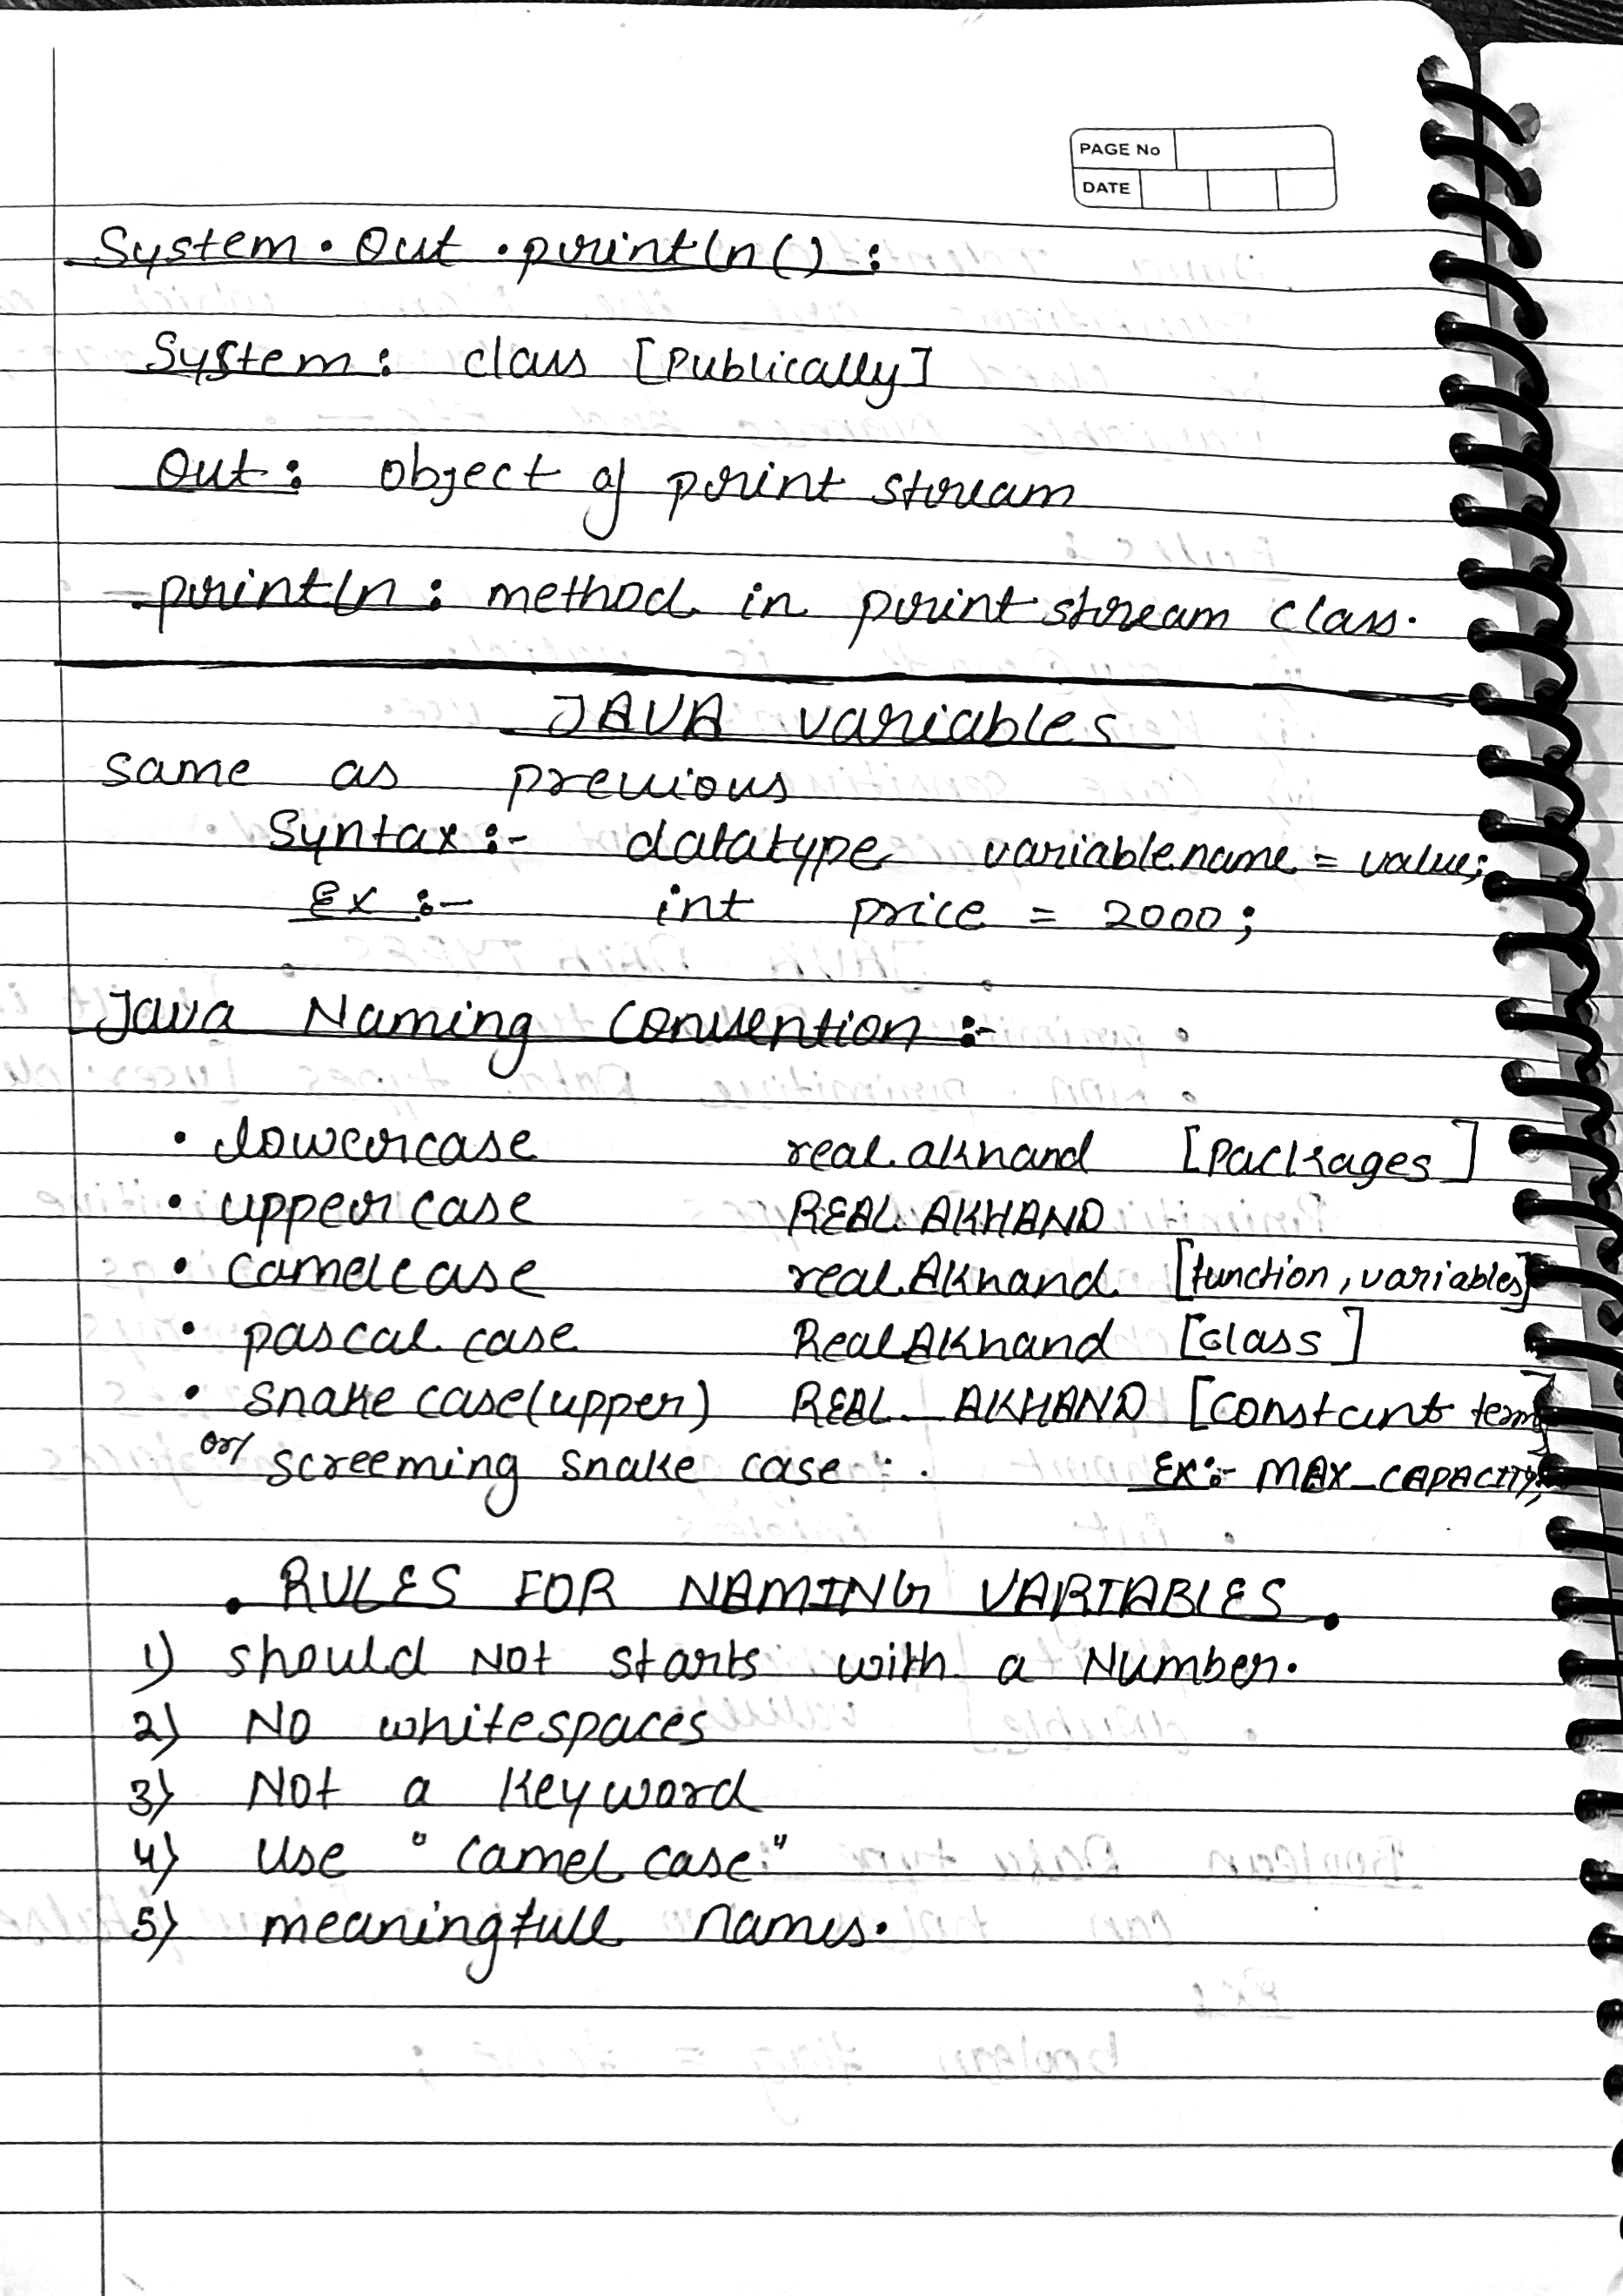 PAGE No
DATE
System. Out .println() :
System: class [Publically]
Out: object of print stream
println: method in print stream class.
JAVA variables
same as previous
Syntax :- datatype variablename = value;
Ex :- int price = 2000;
Java Naming Convention :-
• lowercase real.akhand [Packages]
• uppercase REAL AKHAND
• camelcase realAkhand [function, variables]
• pascal case RealAkhand [class]
• snake case(upper) REAL_AKHAND [constant term]
or/ screeming snake case : . Ex:- MAX_CAPACITY;
. RULES FOR NAMING VARIABLES .
1) should Not starts with a Number.
2) No whitespaces
3) Not a Keyword
4) Use "camel case"
5) meaningfull names.